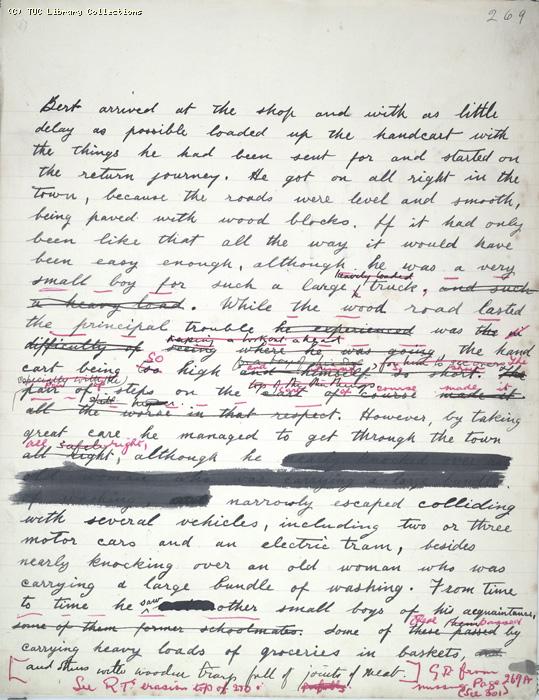 (C) TUC Library Collections
269
Bert arrived at the shop and with as little
delay as possible loaded up the handcart with
the things he had been sent for and started on
the return journey. He got on all right in the
town, because the roads were level and smooth,
being paved with wood blocks. If it had only
been like that all the way it would have
been easy enough, although he was a very
small boy for such a large heavily loaded truck, and such
a heavy load. While the wood road lasted
the principal trouble he experienced was the
difficulty of seeing where he was going the hand
taking a lookout ahead
cart being so high and himself so short.
especially with the
pair of steps on the top of the things of course made it
all the worse in that respect. However, by taking
great care he managed to get through the town
all safely right,
all right, although he
narrowly escaped colliding
with several vehicles, including two or three
motor cars and an electric tram, besides
nearly knocking over an old woman who was
carrying a large bundle of washing. From time
to time he saw other small boys of his acquaintance,
some of them former schoolmates. some of these passed by
carrying heavy loads of groceries in baskets,
and others with wooden trays full of joints of meat
See R.T's erasion top of 270. from
missing Page 269A
(See 301)